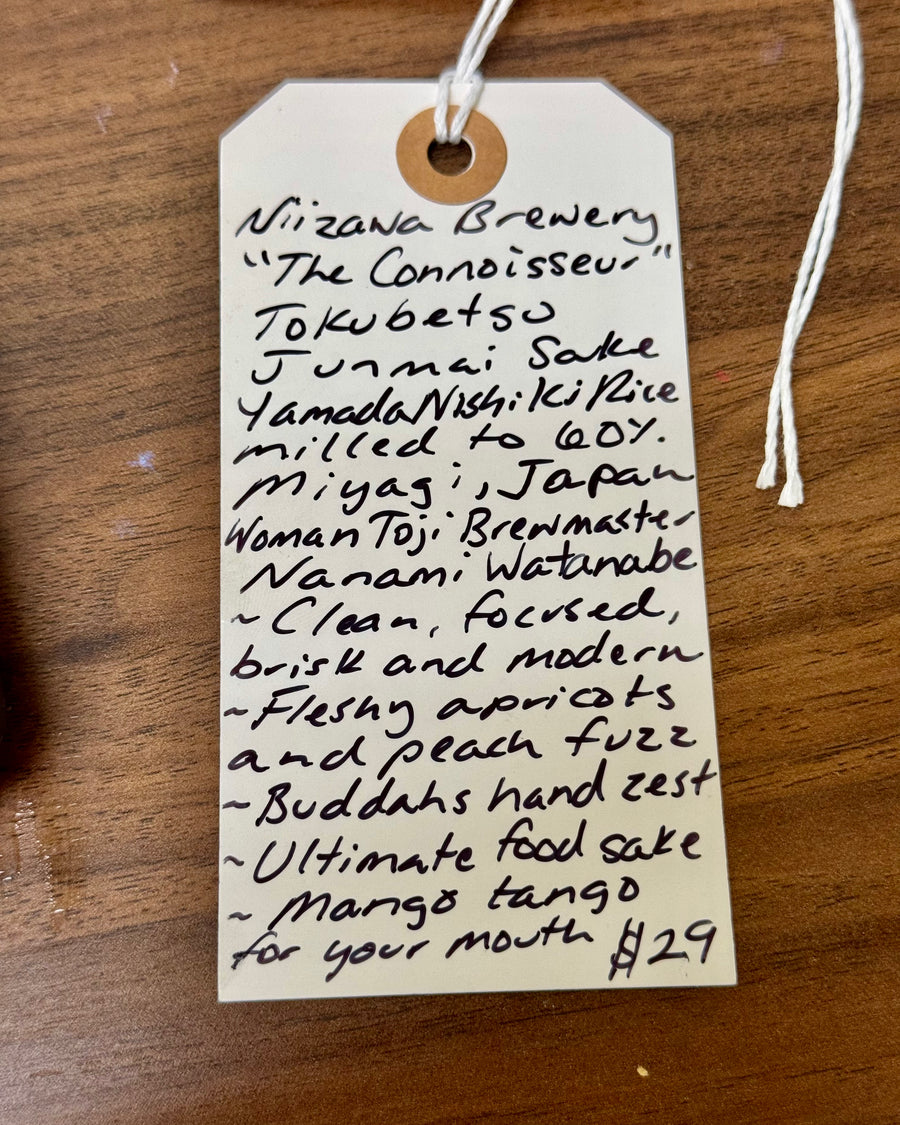 Niizawa Brewery
"The Connoisseur"
Tokubetsu
Junmai Sake
Yamada Nishiki Rice
milled to 60%.
Miyagi, Japan
Woman Toji Brewmaster
Nanami Watanabe
~ Clean, focused,
brisk and modern
~ Fleshy apricots
and peach fuzz
~ Buddahs hand zest
~ Ultimate food sake
~ Mango tango
for your mouth $29